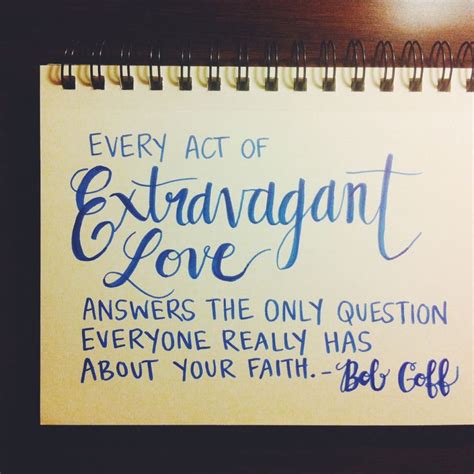 EVERY ACT OF
Extravagant
Love
ANSWERS THE ONLY QUESTION
EVERYONE REALLY HAS
ABOUT YOUR FAITH. - Bob Goff